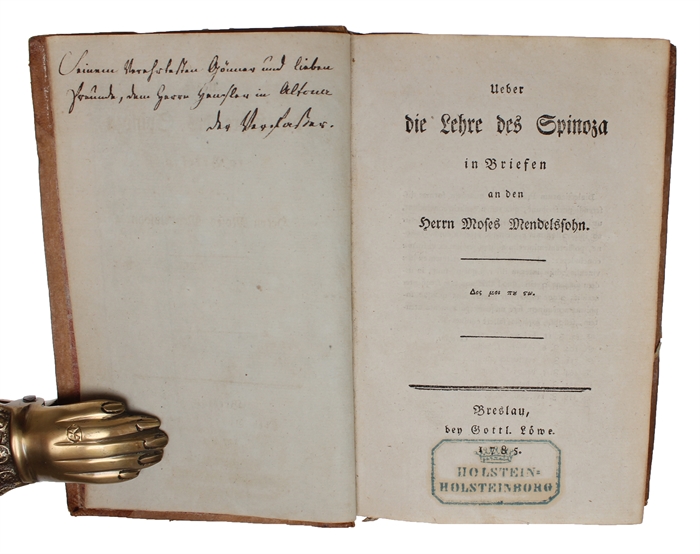 Seinem Verehrtesten Gönner und lieben
Freunde, dem Herrn Hensler in Altona
der Verfasser.
Ueber
die Lehre des Spinoza
in Briefen
an den
Herrn Moses Mendelssohn.
Δος μοι πυ στω.
Breslau,
bey Gottl. Löwe.
1785.
HOLSTEIN-
HOLSTEINBORG